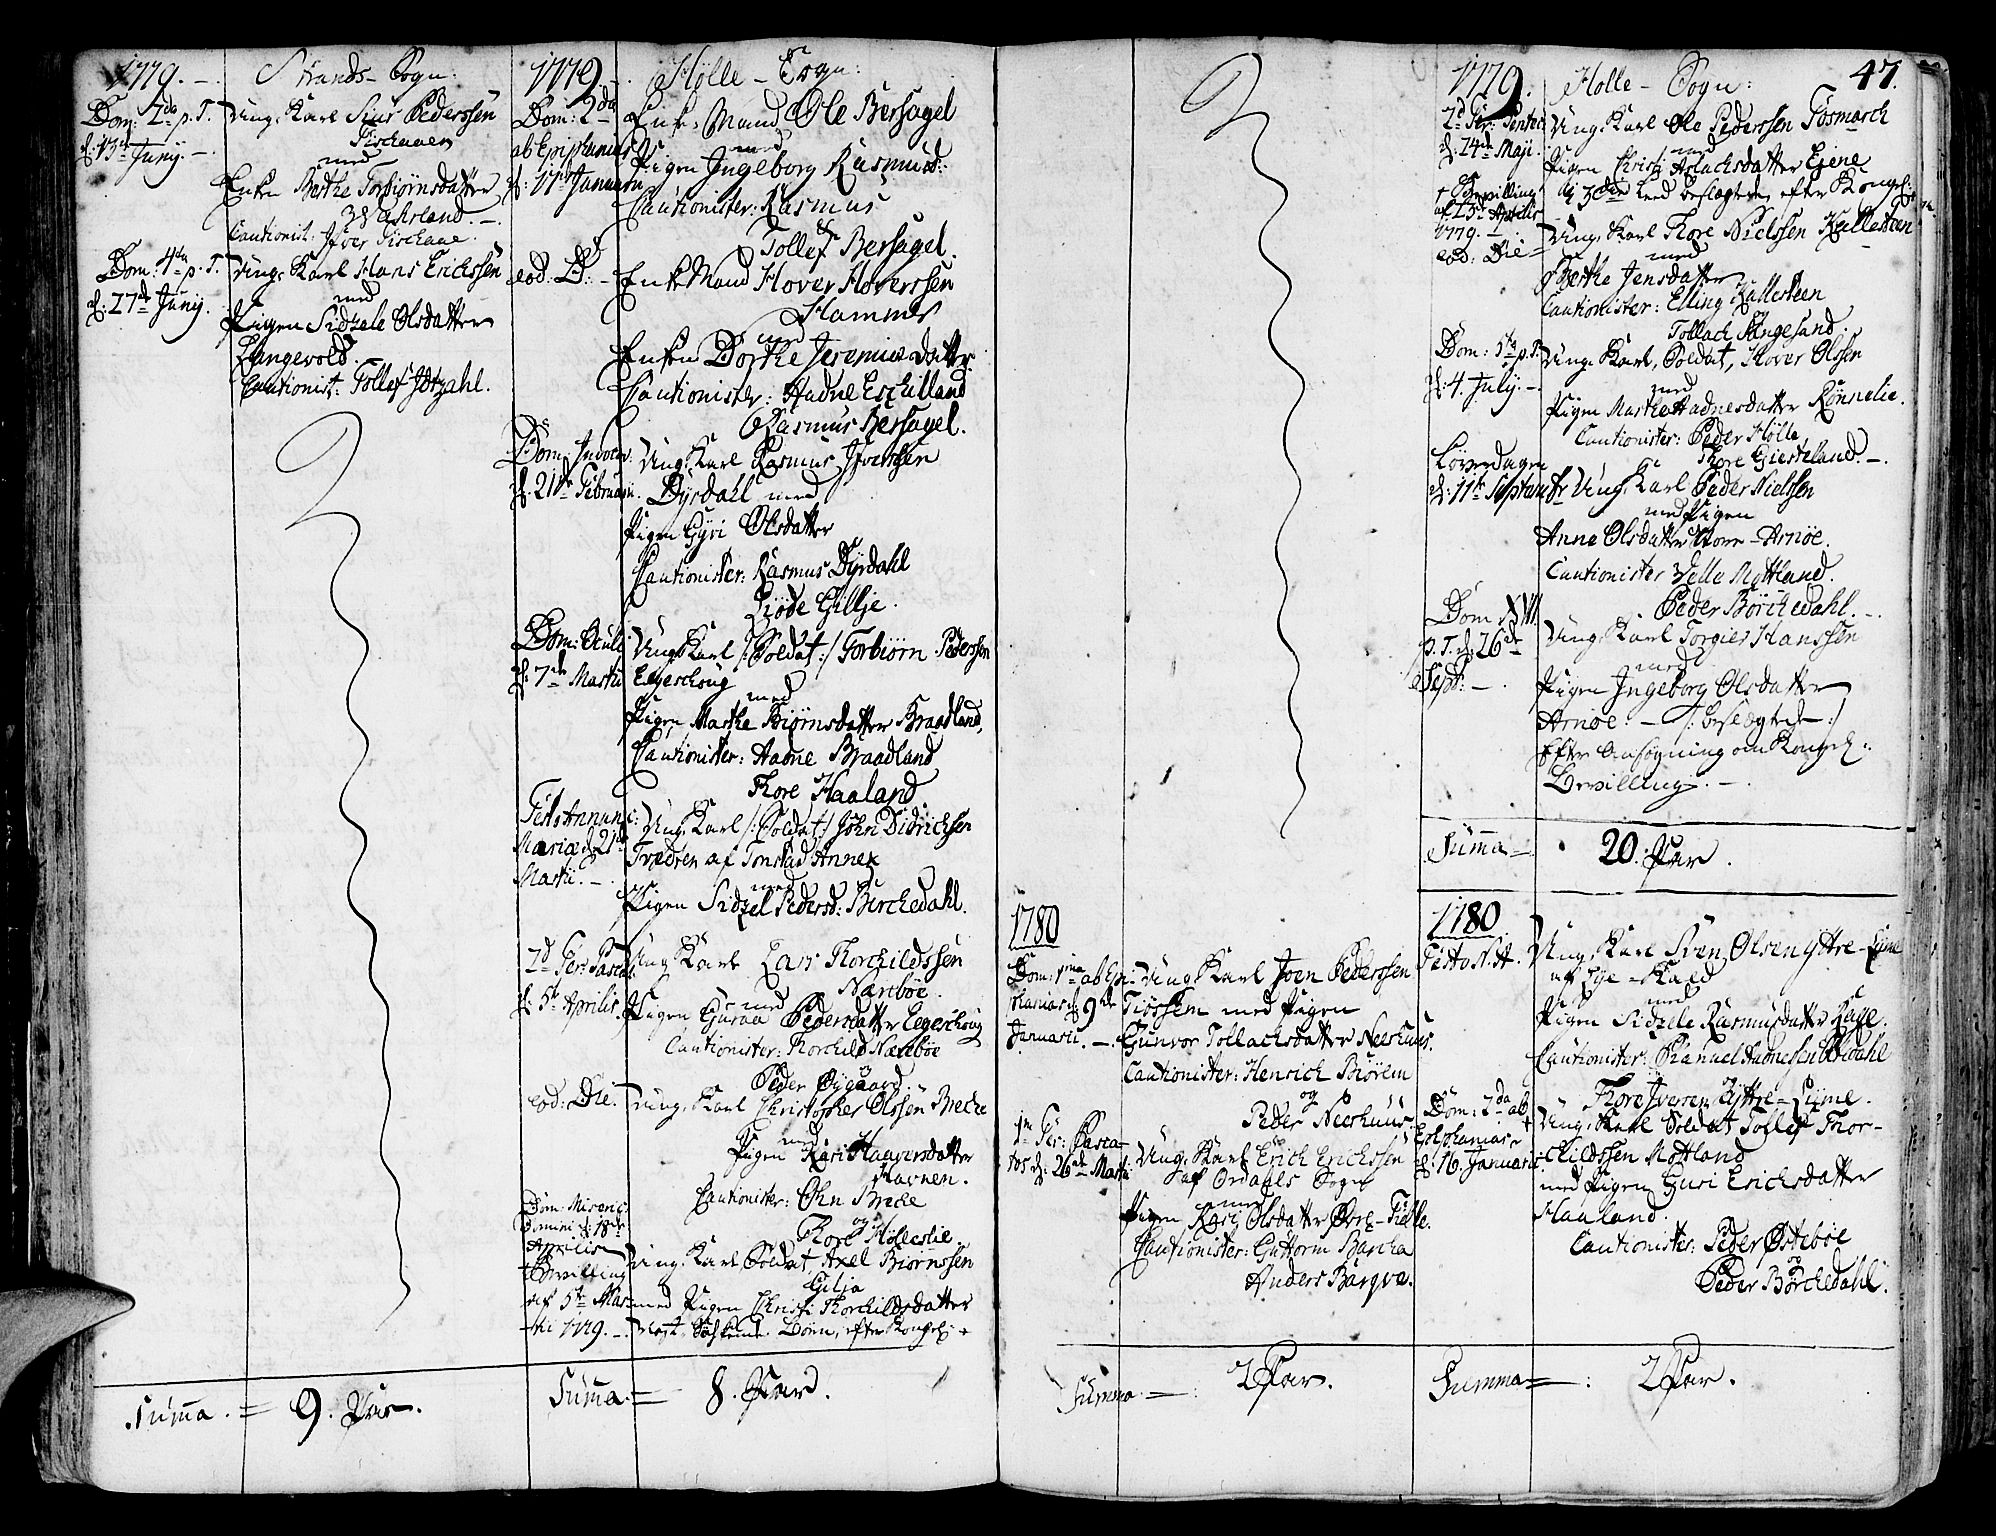 1779. Strands-Sogn:
Dom: 2da p. T.
d: 13de Junij.
Ung Karl Siur Pedersen
Fischaaen
med
Enken Berthe Torbiørnsdatter
Cautionist: Iver Fischaae.
Dom: 4ta p. T.
d: 27de Junij.
Ung Karl Hans Erichsen
med
Pigen Sidzele Olsdatter
Langevold.
Cautionist: Tollef Jøtzahl.
Summa = 9. Par.
1779. Hølle-Sogn:
Dom: 2da
ab Epiphanias
d: 17de Januarii
Enke Mand Ole Bersagel
med
Pigen Ingeborg Rasmusd:
Cautionister: Rasmus
Tollef Bersagel.
eod: D:
Enke Mand Hover Hoverssen
Hammer
med
Enken Dorthe Jeremiæ datter.
Cautionister: Hadne Eschilland
Rasmus Bersagel.
Dom: Invocav:
d: 21de Februarii.
Ung Karl Rasmus Iverssen
Dyrdahl med
Pigen Gyri Olsdatter
Cautionister: Rasmus Dyrdahl
Gillje.
Dom: Oculi
d: 7de Martii
Ung Karl /:Soldat:/ Torbiørn Pederssen
Eegeschoug
med
Pigen Marthe Biørnsdatter Braadland.
Cautionister: Aadne Braadland
Thore Haaland
Festo Annunc:
Mariæ d. 21de
Martii.
Ung Karl /:Soldat:/ John Didrichsen
Tvedten af Tonstad Annex
med
Pigen Sidzel Pedersd: Børchedahl.
2d Fer: Pascat.
d: 5te Aprilis.
Ung Karl Lars Thorchildssen
Næsebøe.
med
Pigen Guroa Pedersdatter Eegeschoug
Cautionister: Thorchild Næsebøe
Peder Øygaard.
eod: Die.
Ung Karl Christopher Olssen Breche
med
Pigen Kari Haaversdatter
Havnen.
Cautionister: Ohn Breche
og
Thore Hølleslie.
Dom: Miseric:
Domini d: 18de
Aprilis
+ Bevilling
af 5te Mar-
tii 1779.
Ung Karl Soldat, Axel Biørnssen
Gilja
med Pigen Christi Thorchildsdatter
Næst Søskende Børn, efter Kongel: +
Summa = 8. Par.
47.
1779. Hølle-Sogn:
2d Fer: Pentec:
d: 24de Maji.
+ Bevilling
af 23de Aprilis
1779.
Ung Karl Ole Pederssen Fosmarch
med
Pigen Christi Aslachsdatter Eiene
i 3die Leed beslægtede, efter Kongel: +
eod: Die
Ung Karl Thore Nielssen Kallesteen
med
Berthe Jensdatter
Cautionister: Elling Kallesteen
Tollach Langesand.
Dom: 5ta p. T.
d: 4. Julij.
Ung Karl, Soldat, Hover Olssen
med
Pigen Marthe Hadnesdatter Rønnelie.
Cautionister: Peder Hølle
Thore Giesteland.
Løverdagen
d: 11te Septembr
Ung Karl Peder Nielssen
med Pigen
Anne Olsdatter Store-Arnøe.
Cautionister Velle Mottland.
Peder Børchedahl.
Dom XVII.
p. T. d. 26de
Sept:
Ung Karl Torgier Hanssen
med
Pigen Ingeborg Olsdatter
Arnøe. /:beslægtede:/
Efter Ansøgning om Kongel:
Bevilling.
Summa = 20. Par.
1780
Dom: 1ma ab Epi-
phanias d 9de
Januarii.
Ung Karl Joen Pederssen
Tiøssem med Pigen
Gunvor Tollachsdatter Neshuus.
Cautionister: Henrich Biørem
og
Peder Neshuus.
1ma Fer: Pasca-
tos d: 26de Martii
Ung Karl Erich Erichssen
af Ordahls Sogn
med
Pigen Kari Olsdatter Øvre-Tielle.
Cautionister: Guttorm Barcha
Anders Bargva.
Summa = 2 Par.
1780
Festo N. A.
Ung Karl Sven Olsen Yttre-Lyme
med
Pigen Sidzele Rasmusdatter
Cautionister: Hadnessen
Thore Iversen Yttre-Lyme.
Dom: 2da ab
Epiphanias
d: 16. Januarii
Ung Karl Soldat Tollef Thor-
childssen Mottland
med Pigen Guri Erichsdatter
Haaland.
Cautionister: Peder Østebøe
og
Peder Børchedahl.
Summa = 2 Par.